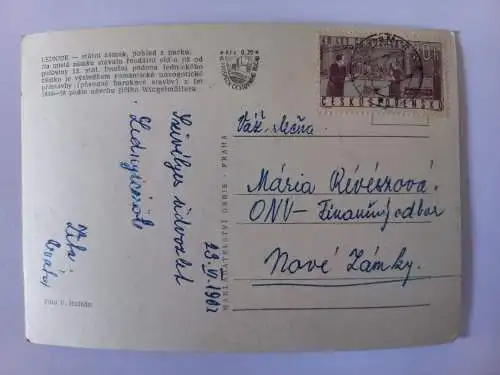 LEDNICE — státní zámek, pohled z parku.
Na místě zámku stávalo feudální sídlo již od
poloviny 13. stol. Dnešní podoba lednického
zámku je výsledkem romantické novogotické
přestavby (původně barokní stavby) z let
1846–58 podle návrhu Jiřího Wingelmüllera
★ Kčs 0,20 ★
ČESKOSLOVENSKO
Váž. slečna
Mária Révészová
ONV – Finančný odbor
Nové Zámky.
Szivélyes üdvözlet
23. IV. 1962
NAKLADATELSTVÍ ORBIS - PRAHA
Foto